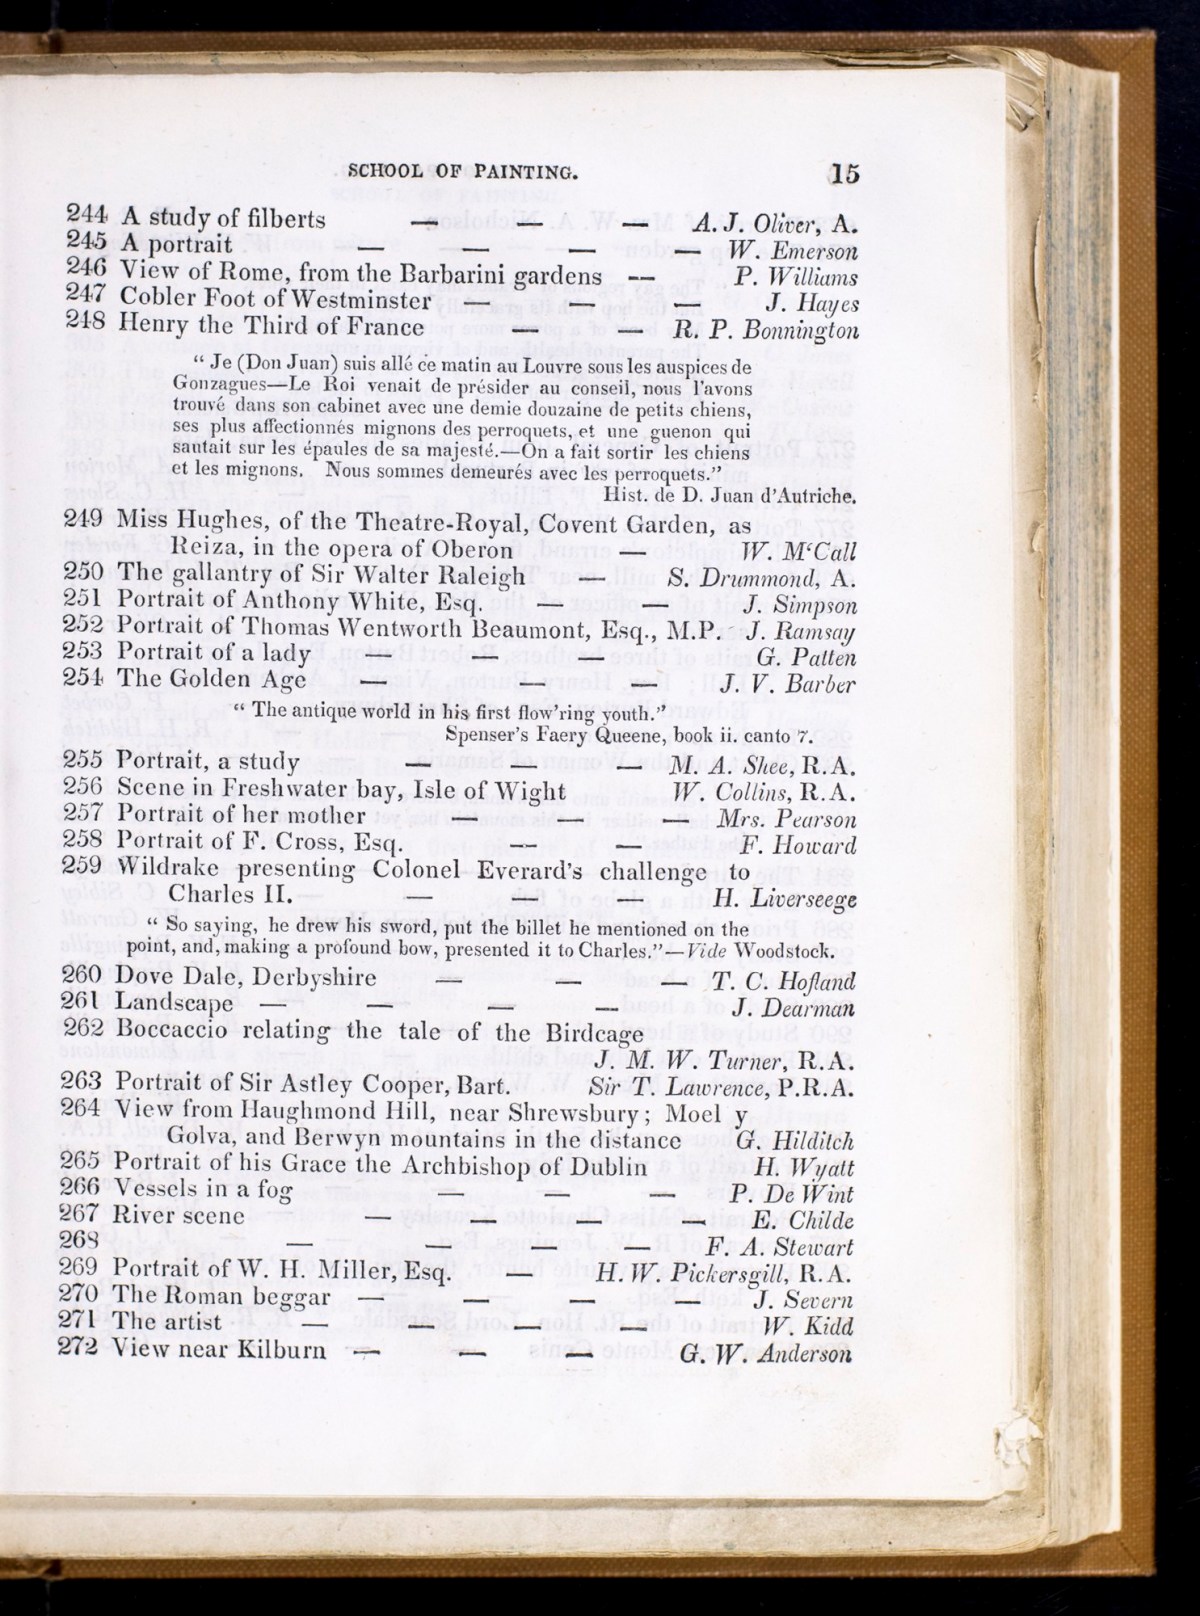 SCHOOL OF PAINTING. 15
244 A study of filberts — — — A. J. Oliver, A.
245 A portrait — — — — W. Emerson
246 View of Rome, from the Barbarini gardens — P. Williams
247 Cobler Foot of Westminster — — — J. Hayes
248 Henry the Third of France — — R. P. Bonnington
“ Je (Don Juan) suis allé ce matin au Louvre sous les auspices de
Gonzagues—Le Roi venait de présider au conseil, nous l’avons
trouvé dans son cabinet avec une demie douzaine de petits chiens,
ses plus affectionnés mignons des perroquets, et une guenon qui
sautait sur les épaules de sa majesté.—On a fait sortir les chiens
et les mignons. Nous sommes demeurés avec les perroquets.”
Hist. de D. Juan d’Autriche.
249 Miss Hughes, of the Theatre-Royal, Covent Garden, as
Reiza, in the opera of Oberon — W. M‘Call
250 The gallantry of Sir Walter Raleigh — S. Drummond, A.
251 Portrait of Anthony White, Esq. — — J. Simpson
252 Portrait of Thomas Wentworth Beaumont, Esq., M.P. J. Ramsay
253 Portrait of a lady — — — G. Patten
254 The Golden Age — — — J. V. Barber
“ The antique world in his first flow’ring youth.”
Spenser’s Faery Queene, book ii. canto 7.
255 Portrait, a study — — — M. A. Shee, R.A.
256 Scene in Freshwater bay, Isle of Wight W. Collins, R.A.
257 Portrait of her mother — — — Mrs. Pearson
258 Portrait of F. Cross, Esq. — — F. Howard
259 Wildrake presenting Colonel Everard’s challenge to
Charles II. — — — H. Liverseege
“ So saying, he drew his sword, put the billet he mentioned on the
point, and, making a profound bow, presented it to Charles.”—Vide Woodstock.
260 Dove Dale, Derbyshire — — — T. C. Hofland
261 Landscape — — — — J. Dearman
262 Boccaccio relating the tale of the Birdcage
J. M. W. Turner, R.A.
263 Portrait of Sir Astley Cooper, Bart. Sir T. Lawrence, P.R.A.
264 View from Haughmond Hill, near Shrewsbury; Moel y
Golva, and Berwyn mountains in the distance G. Hilditch
265 Portrait of his Grace the Archbishop of Dublin H. Wyatt
266 Vessels in a fog — — — P. De Wint
267 River scene — — — — E. Childe
268 — — — — F. A. Stewart
269 Portrait of W. H. Miller, Esq. — H. W. Pickersgill, R.A.
270 The Roman beggar — — — — J. Severn
271 The artist — — — — W. Kidd
272 View near Kilburn — — — G. W. Anderson